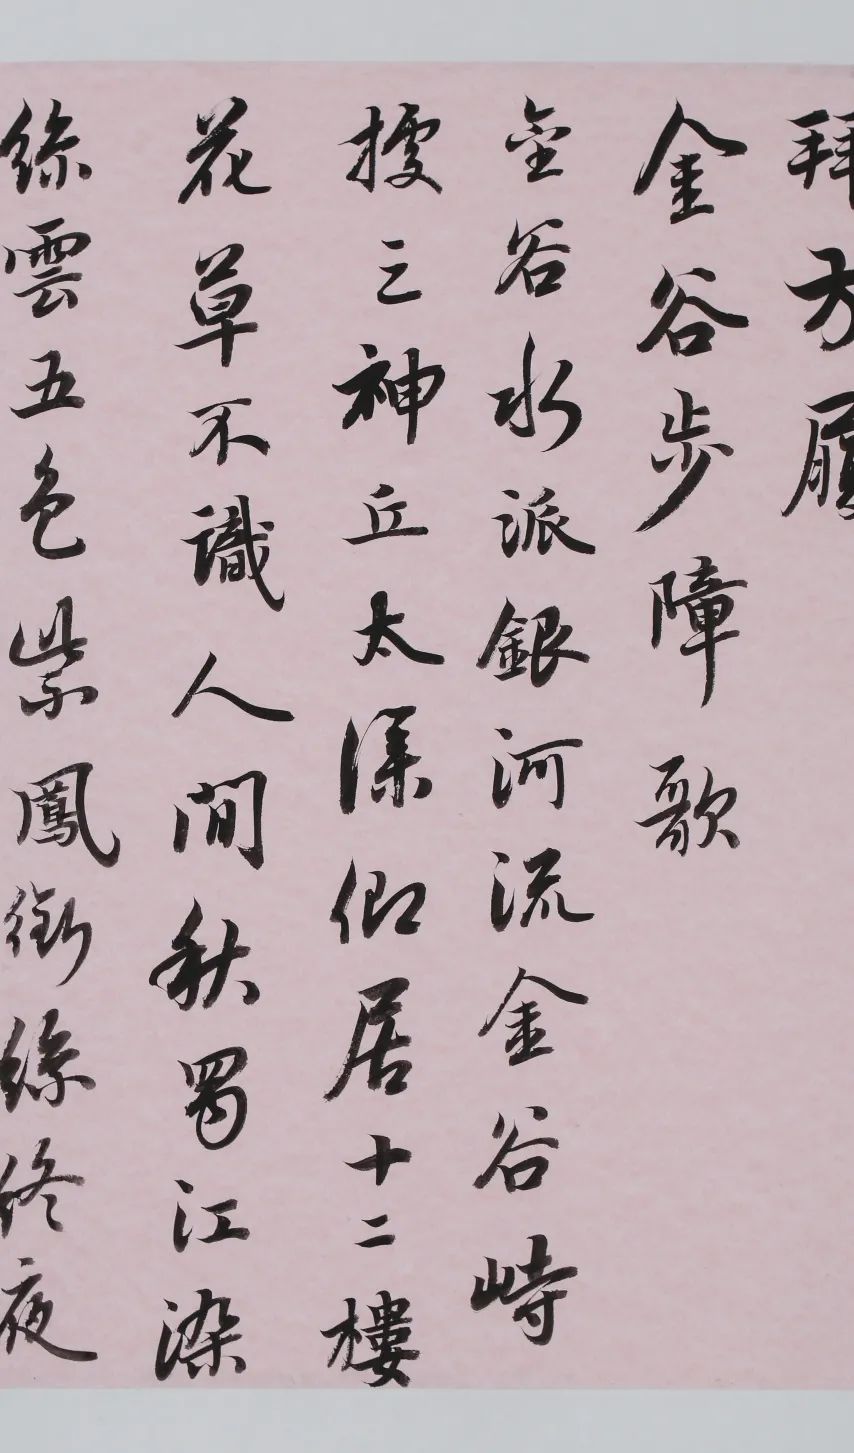 拜方
金谷步障歌
金谷水派銀河流金谷峙
據三神丘太僕卿居十二樓
花草不識人間秋蜀江染
絲雲五色紫鳳銜絲終夜